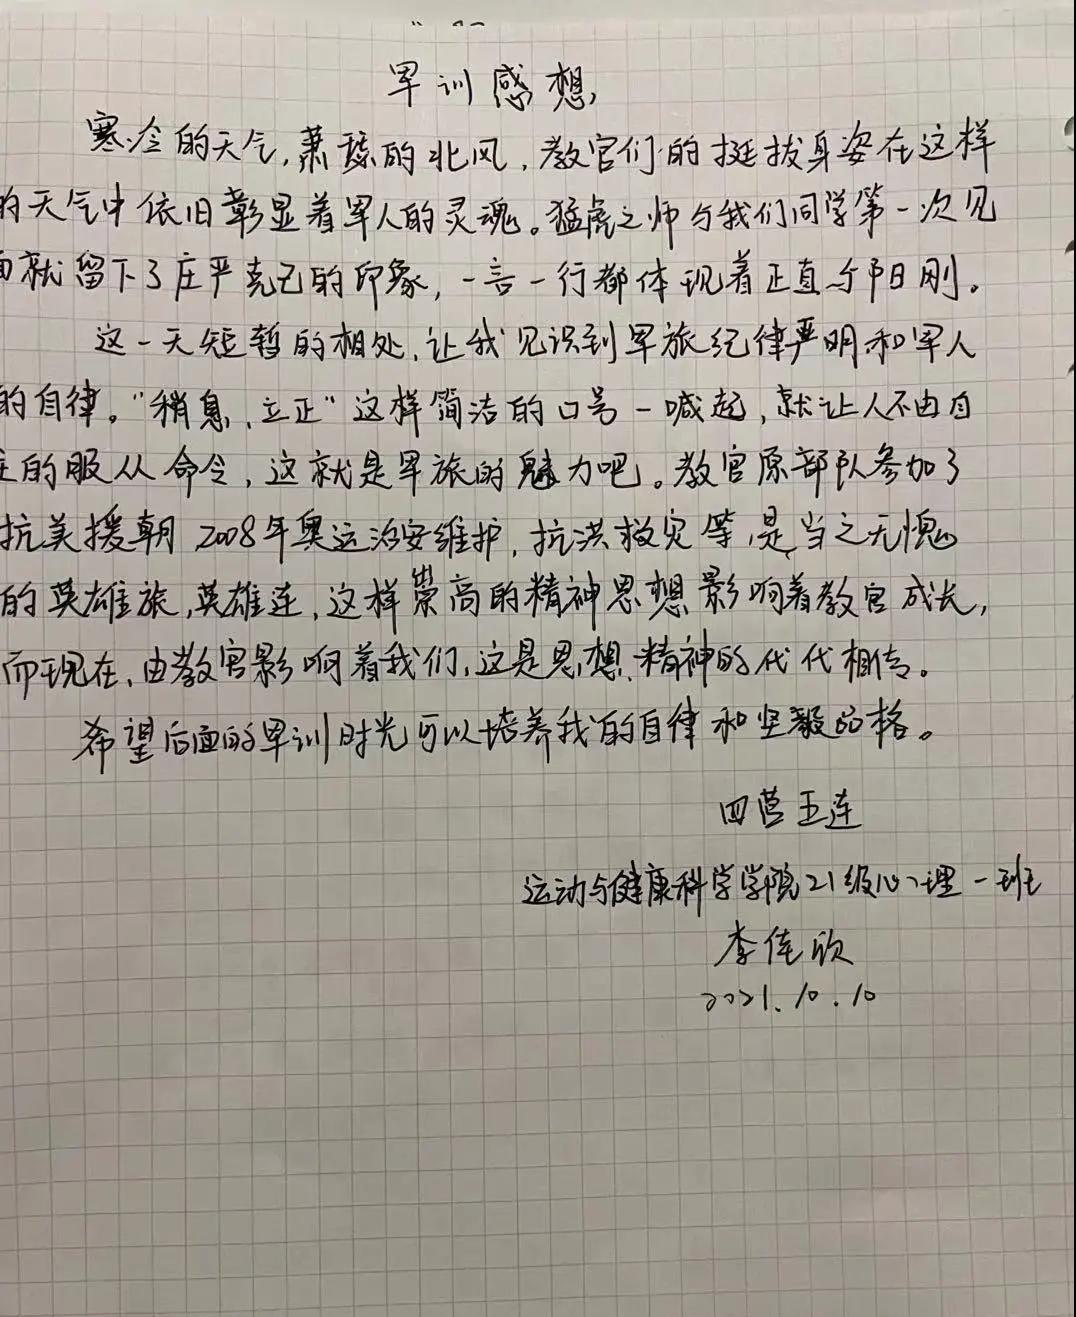 军训感想
寒冷的天气,萧瑟的北风,教官们的挺拔身姿在这样
的天气中依旧彰显着军人的灵魂。猛虎之师与我们同学第一次见
面就留下了庄严克己的印象,一言一行都体现着正直与阳刚。
这一天短暂的相处,让我见识到军旅纪律严明和军人
的自律。“稍息、立正”这样简洁的口号一喊起,就让人不由自
主的服从命令,这就是军旅的魅力吧。教官原部队参加了
抗美援朝 2008年奥运治安维护,抗洪救灾等,是当之无愧
的英雄旅,英雄连,这样崇高的精神思想影响着教官成长,
而现在,由教官影响着我们,这是思想、精神的代代相传。
希望后面的军训时光可以培养我的自律和坚毅品格。
四营五连
运动与健康科学学院21级心理一班
李佳欣
2021.10.10